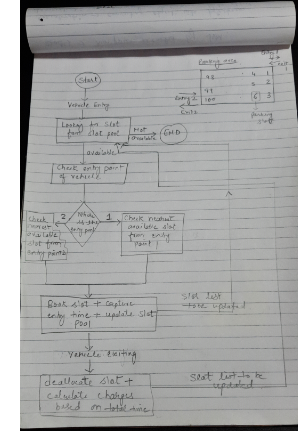 Parking area
Start
Vehicle Entry
Looking for slot
from slot pool
Not
available
END
available
Check entry point
of vehicle
Entry
Exits
parking
43
4
1
5
2
100
6
3
2
1
Check
nearest
available
slot from
entry point
Check nearest
available slot
from entry
point
Book slot + capture
entry time + update slot
Pool
Slot list
to be updated
Vehicle exiting
deallocate slot +
calculate charges
based on total time
Seat list to be
updated